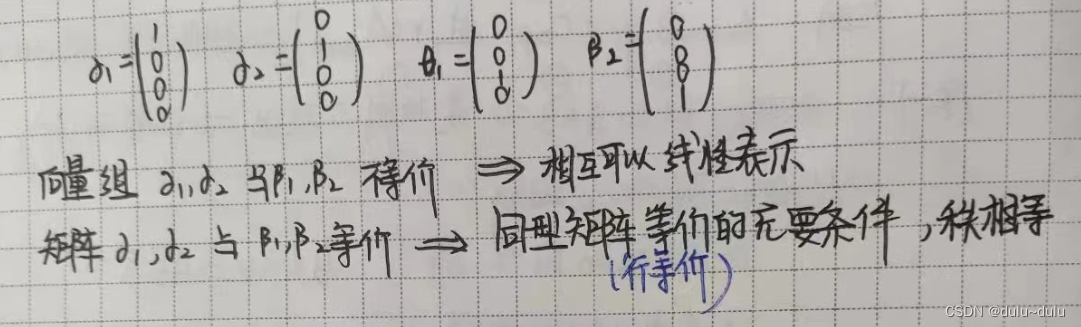 α₁=(1 0 0 0) α₂=(0 1 0 0) β₁=(0 0 1 0) β₂=(0 0 0 1)
向量组 α₁,α₂ 与β₁,β₂ 等价 ⇒ 相互可以线性表示
矩阵 α₁,α₂ 与 β₁,β₂等价 ⇒ 同型矩阵等价的充要条件,秩相等
(行等价)
CSDN @dulu~dulu